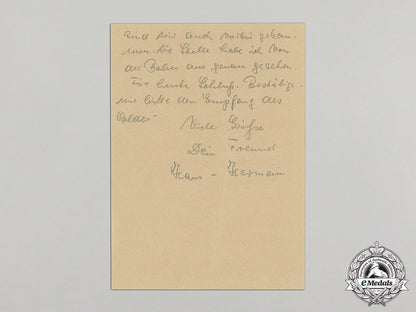 sind wir auch vorbei gekom-
men. die Stelle habe ich von
der Bahn aus genau gesehen.
Für heute Schluß. Bestätige
mir bitte den Empfang des
Geldes.
Viele Grüße
Dein Freund
Hans - Herman
eMedals